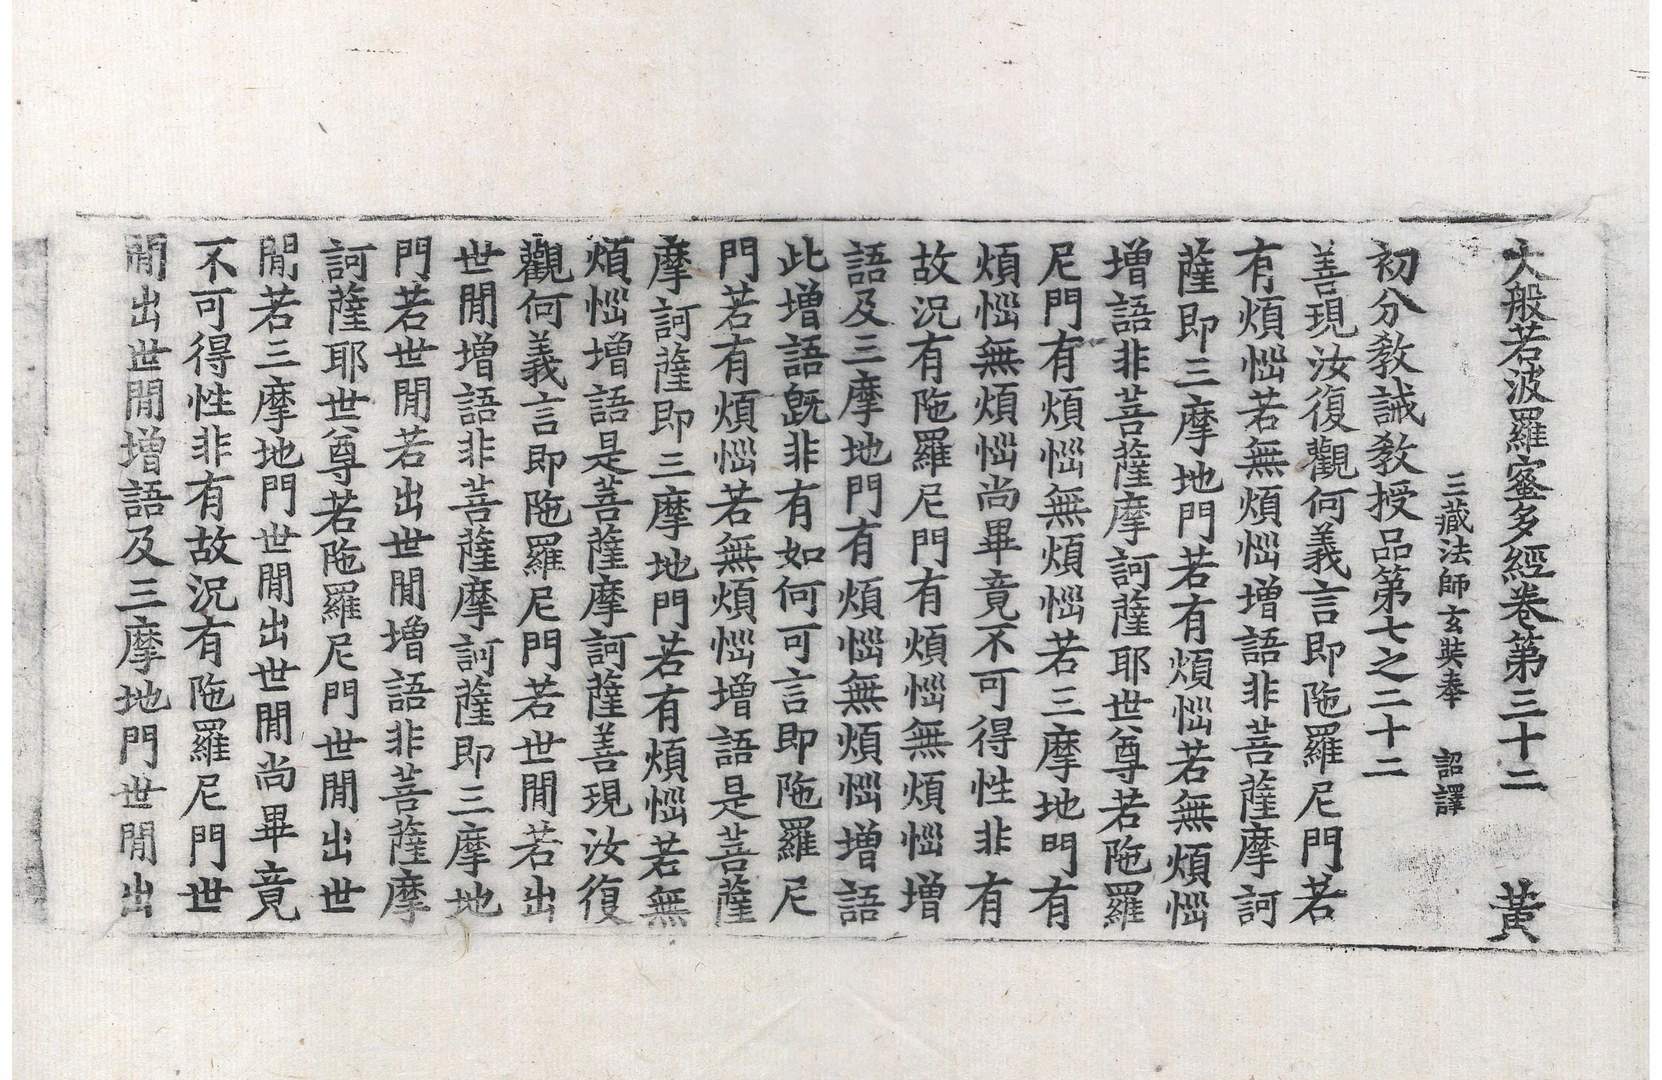 大般若波羅蜜多經卷第三十二　黃
三藏法師玄奘奉　詔譯
初分教誡教授品第七之二十二
善現汝復觀何義言即陁羅尼門若
有煩惱若無煩惱增語非菩薩摩訶
薩即三摩地門若有煩惱若無煩惱
增語非菩薩摩訶薩耶世尊若陁羅
尼門有煩惱無煩惱若三摩地門有
煩惱無煩惱尚畢竟不可得性非有
故況有陁羅尼門有煩惱無煩惱增
語及三摩地門有煩惱無煩惱增語
此增語旣非有如何可言即陁羅尼
門若有煩惱若無煩惱增語是菩薩
摩訶薩即三摩地門若有煩惱若無
煩惱增語是菩薩摩訶薩善現汝復
觀何義言即陁羅尼門若世閒若出
世閒增語非菩薩摩訶薩即三摩地
門若世閒若出世閒增語非菩薩摩
訶薩耶世尊若陁羅尼門世閒出世
閒若三摩地門世閒出世閒尚畢竟
不可得性非有故況有陁羅尼門世
閒出世閒增語及三摩地門世閒出